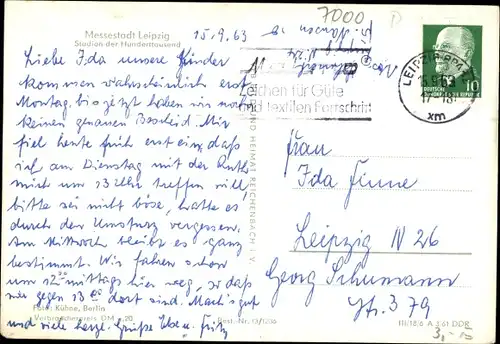 Messestadt Leipzig
Stadion der Hunderttausend
15.9.63
7000
Liebe Ida unsere Kinder
kommen wahrscheinlich erst
Montag, bis jetzt haben wir noch
keinen genauen Bescheid. Mir
fiel heute früh erst ein, daß
ich am Dienstag mit der Ruth
mich um 13 Uhr treffen will,
bitte sei nicht böse, hatte es
durch den Umsturz vergessen.
Am Mittwoch bleibt es ganz
bestimmt. Wir fahren schon
um 12 mittags hier weg, so daß
wir gegen 13 dort sind. Mach's gut
und viele herzl. Grüße Else u. Fritz
Foto: Kühne, Berlin
Verbraucherpreis DM -,20
Best.-Nr. 13/1236
UND HEIMAT REICHENBACH I. V.
Zeichen für Güte
und textilen Fortschritt
LEIPZIG BPA
15.9.63
xm
DEUTSCHE
10
Frau
Ida Finne
Leipzig N 26
Georg Schumann
Str. 379
III/18/6 A 3/61 DDR
3,-